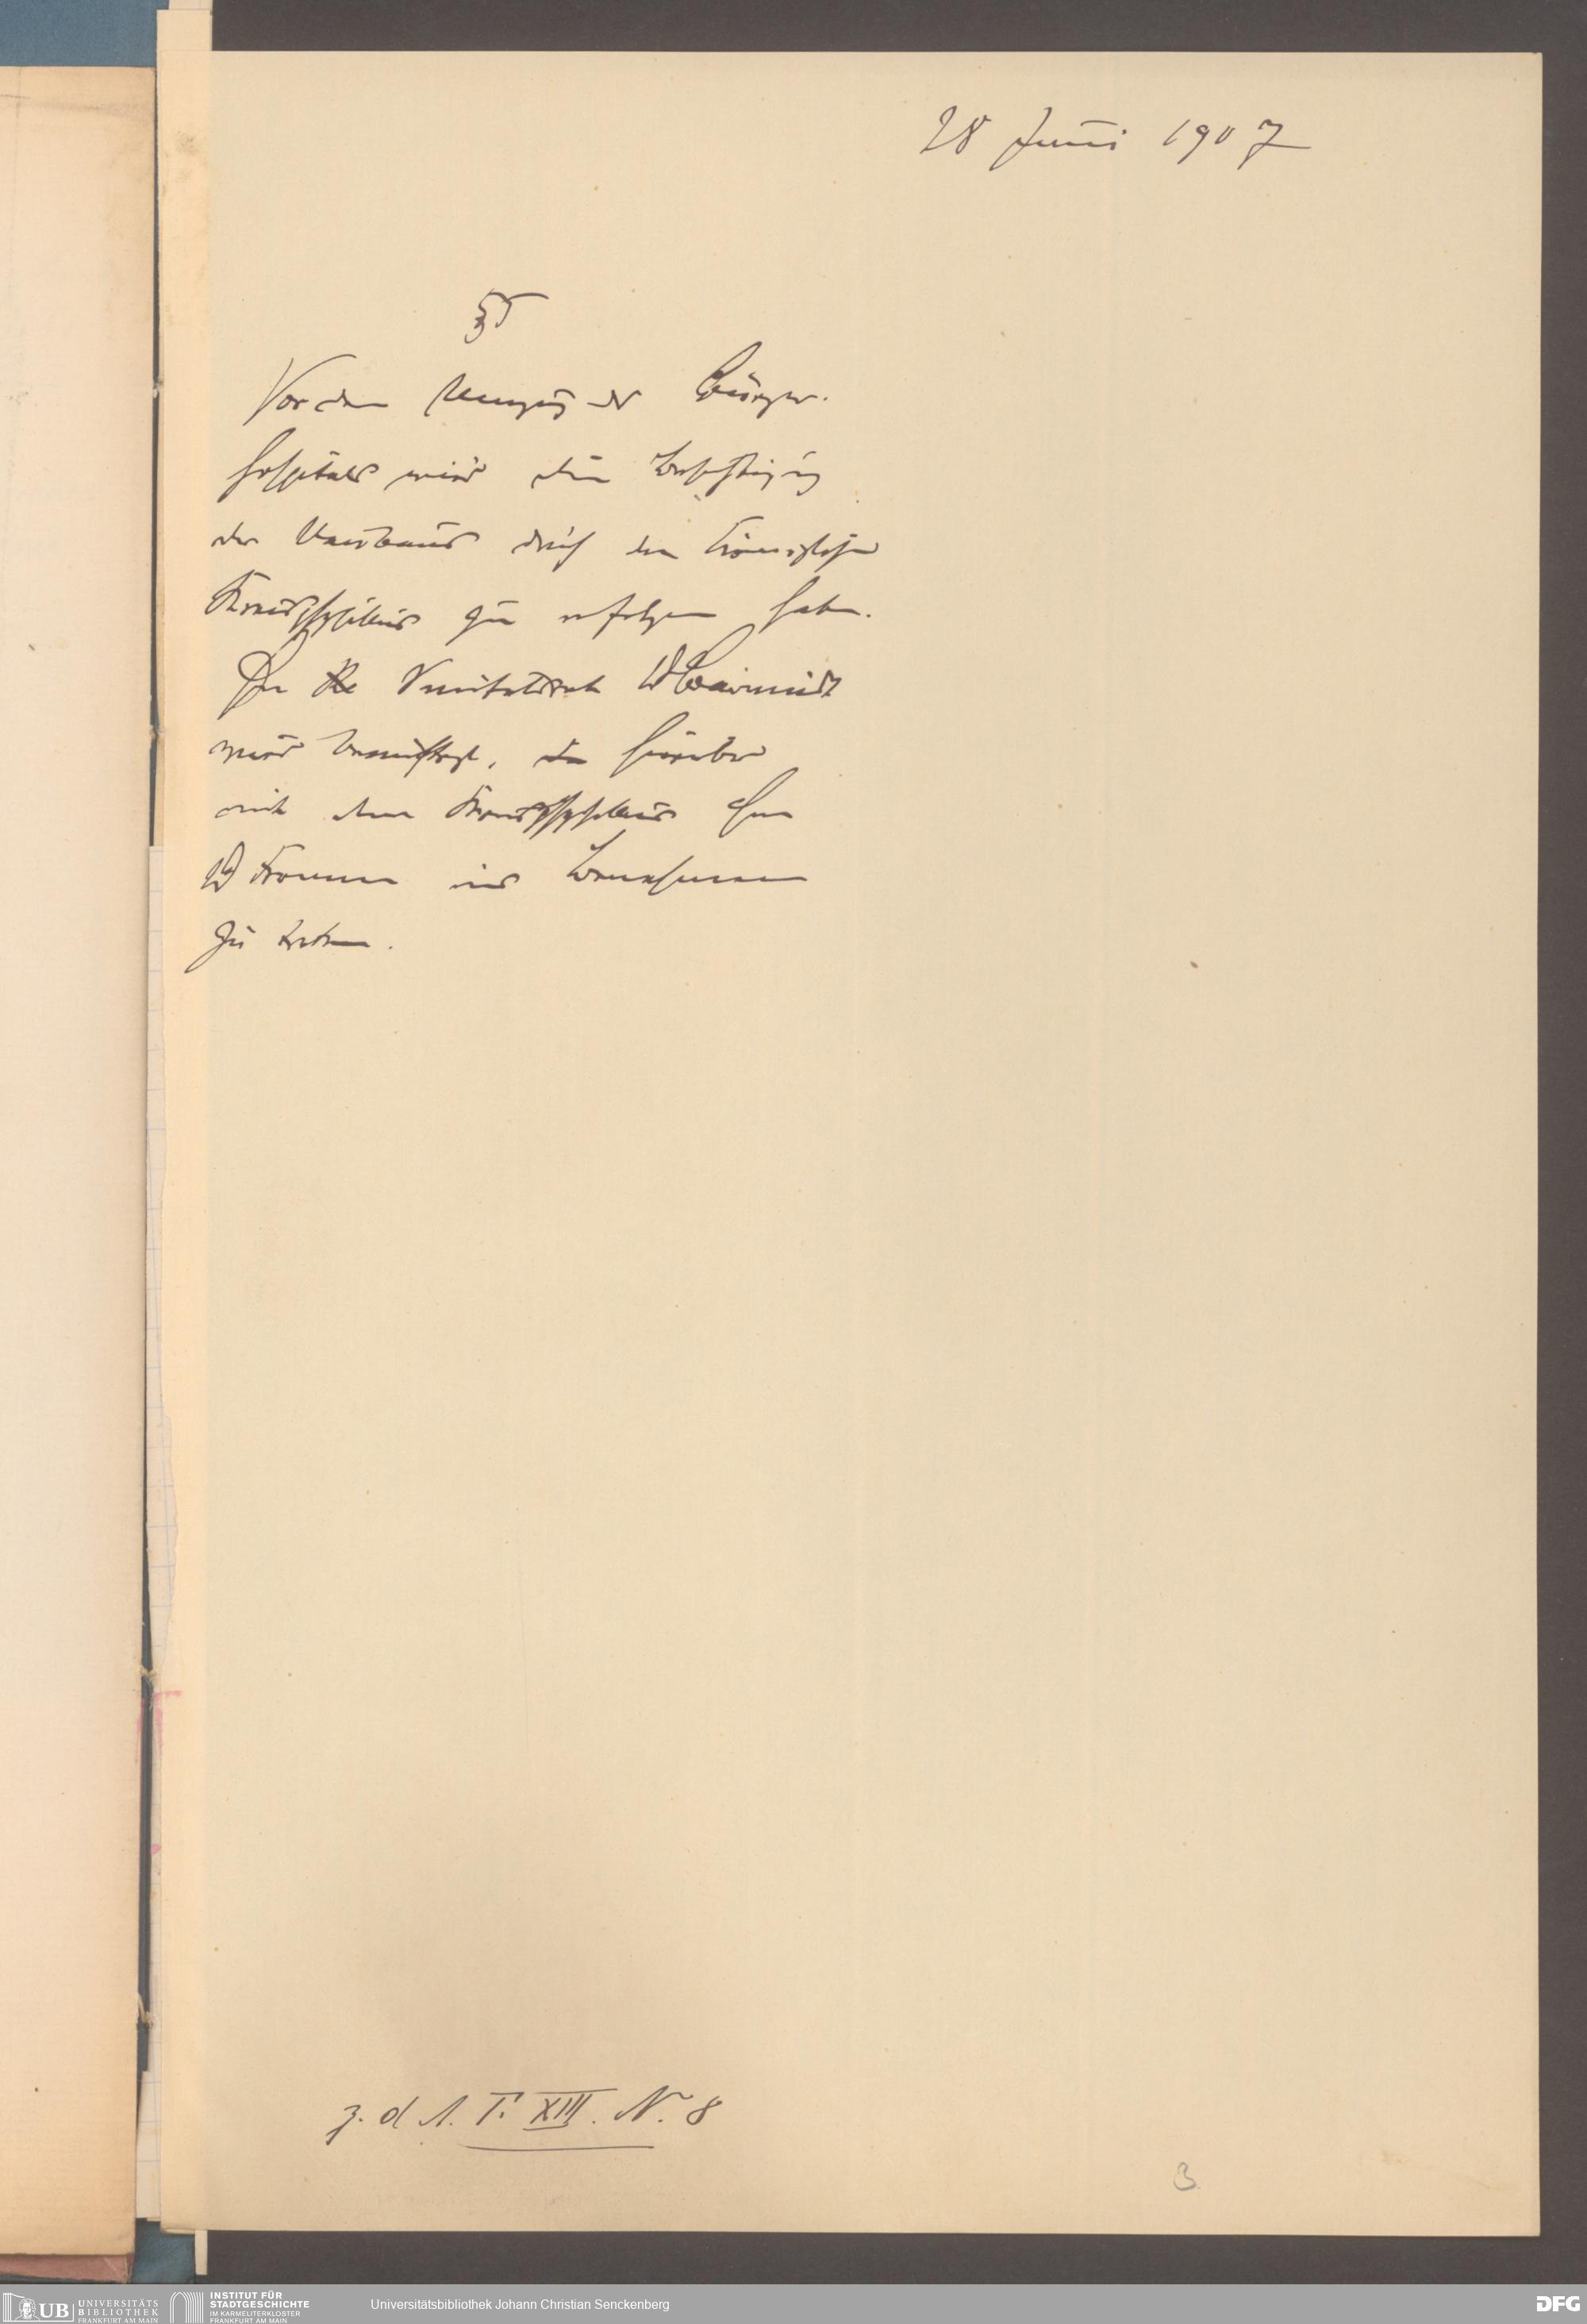 28 Juni 1907
§ 5
Vor dem Umzug des Bürger-
hospitals wird eine Besichtigung
des Neubaus durch den Königlichen
Kreisphysikus zu erfolgen haben.
Der Sanitätsrat Dr
wird beauftragt, hierüber
mit dem Kreisphysikus Herrn
Dr Fromm ins Benehmen
zu treten.
z. d A. T. XIII. N. 8
3
UB UNIVERSITÄTS BIBLIOTHEK FRANKFURT AM MAIN
INSTITUT FÜR STADTGESCHICHTE IM KARMELITERKLOSTER FRANKFURT AM MAIN
Universitätsbibliothek Johann Christian Senckenberg
DFG